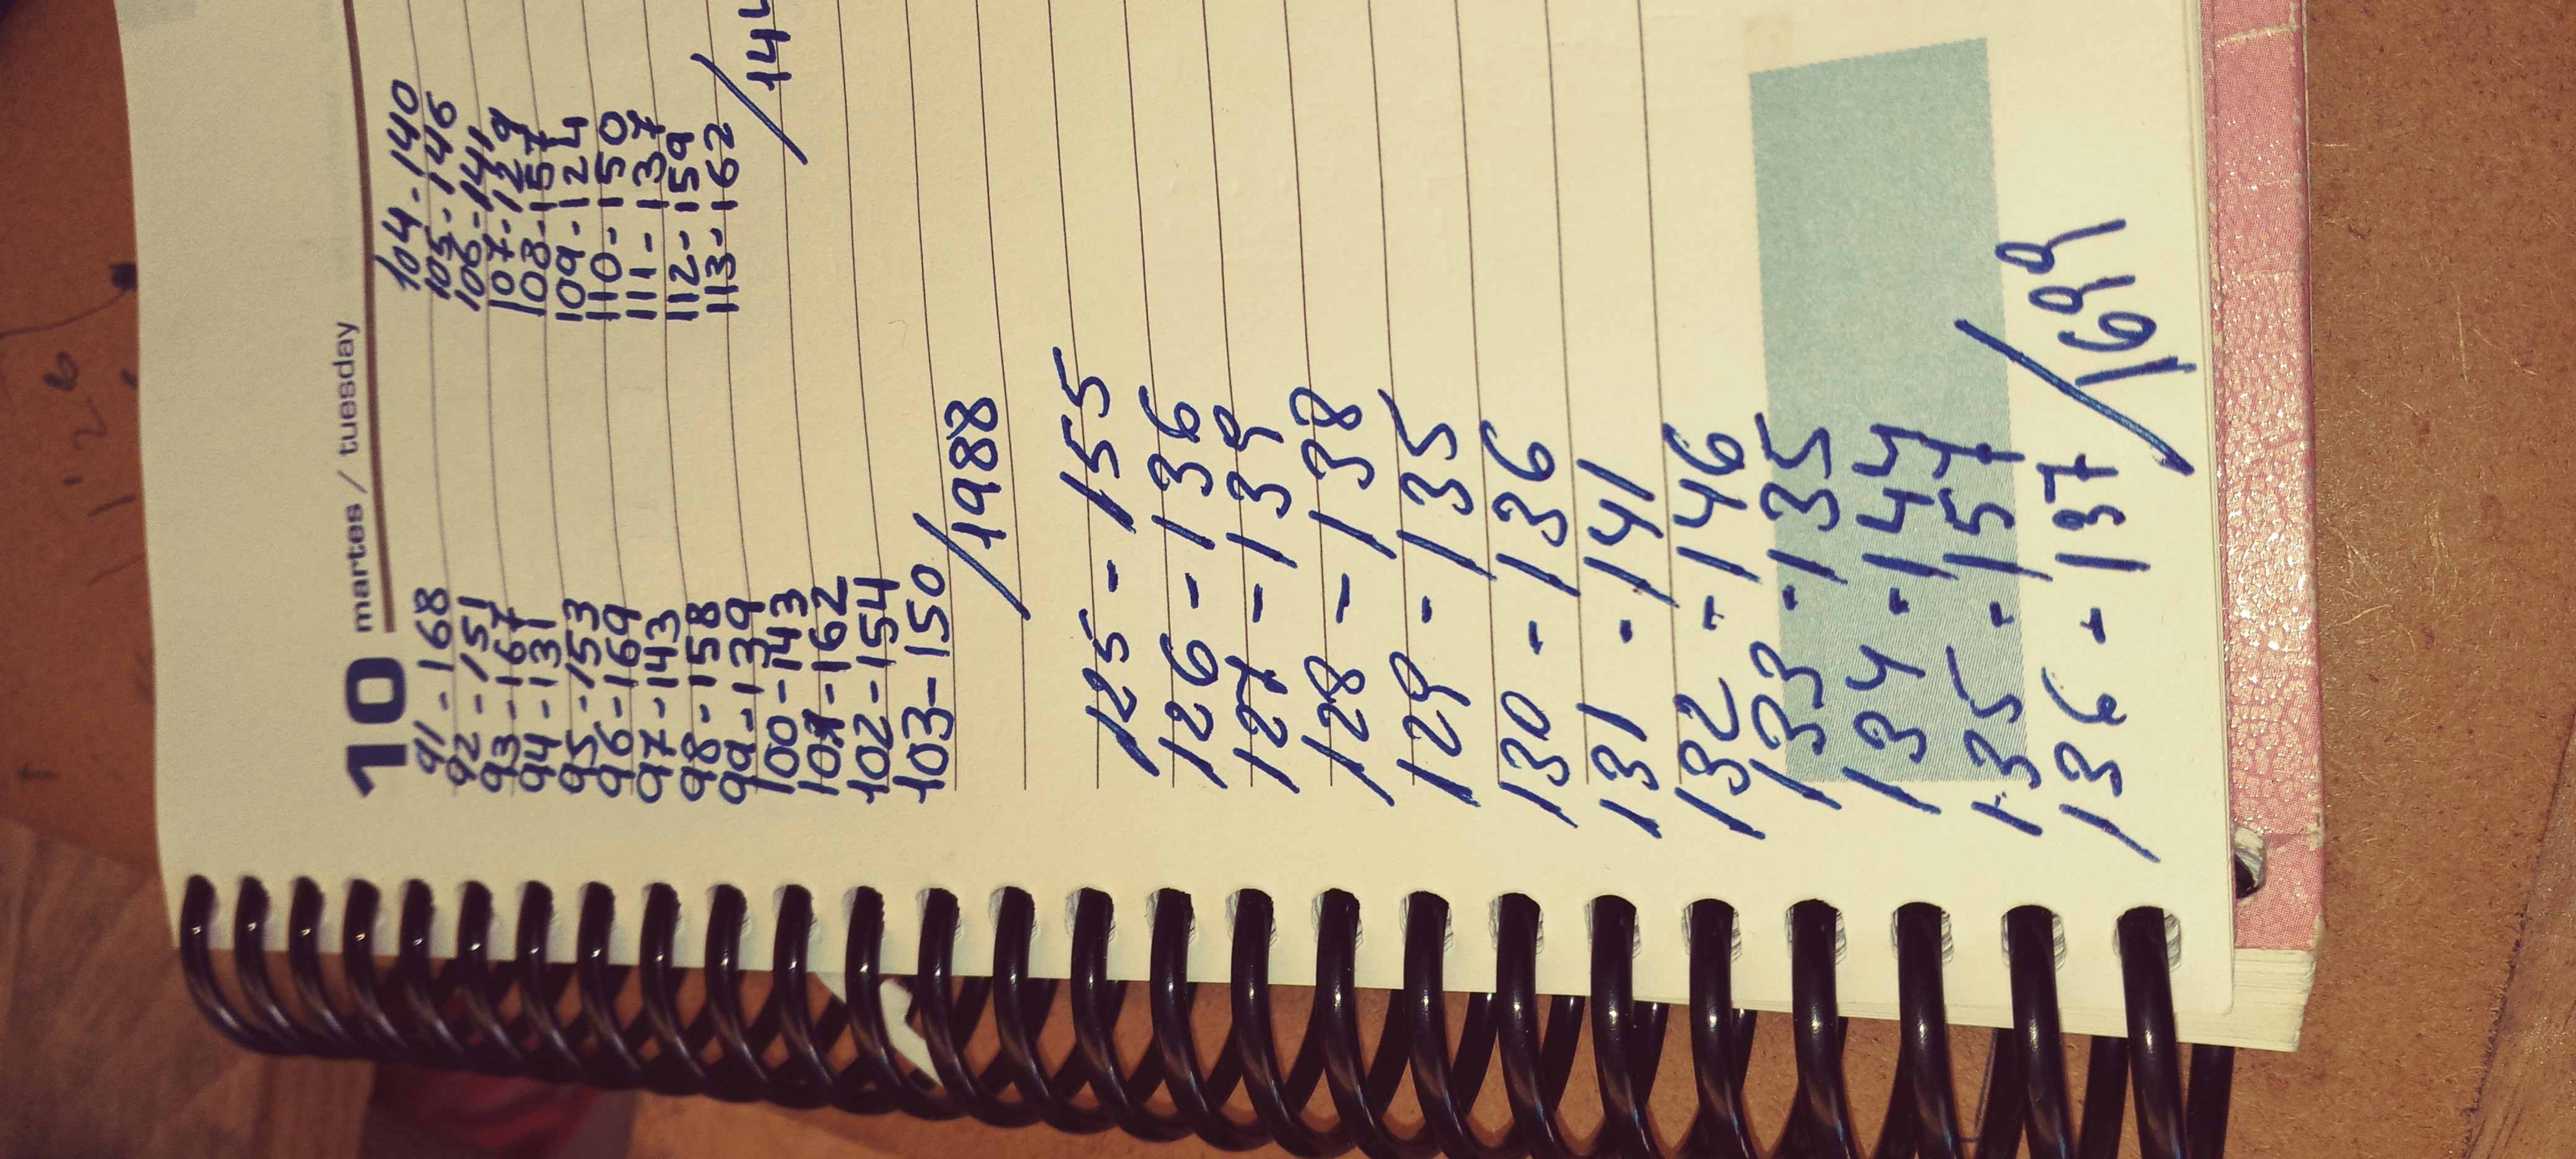 10 martes / tuesday
91-168
92-151
93-167
94-131
95-153
96-169
97-143
98-158
99-139
100-143
101-162
102-154
103-150
/1988
104-140
105-146
106-141
107-129
108-157
109-124
110-150
111-137
112-159
113-162
/144
125-155
126-136
127-139
128-138
129-135
130-136
131-141
132-146
133-135
134-144
135-157
136-137
/1699